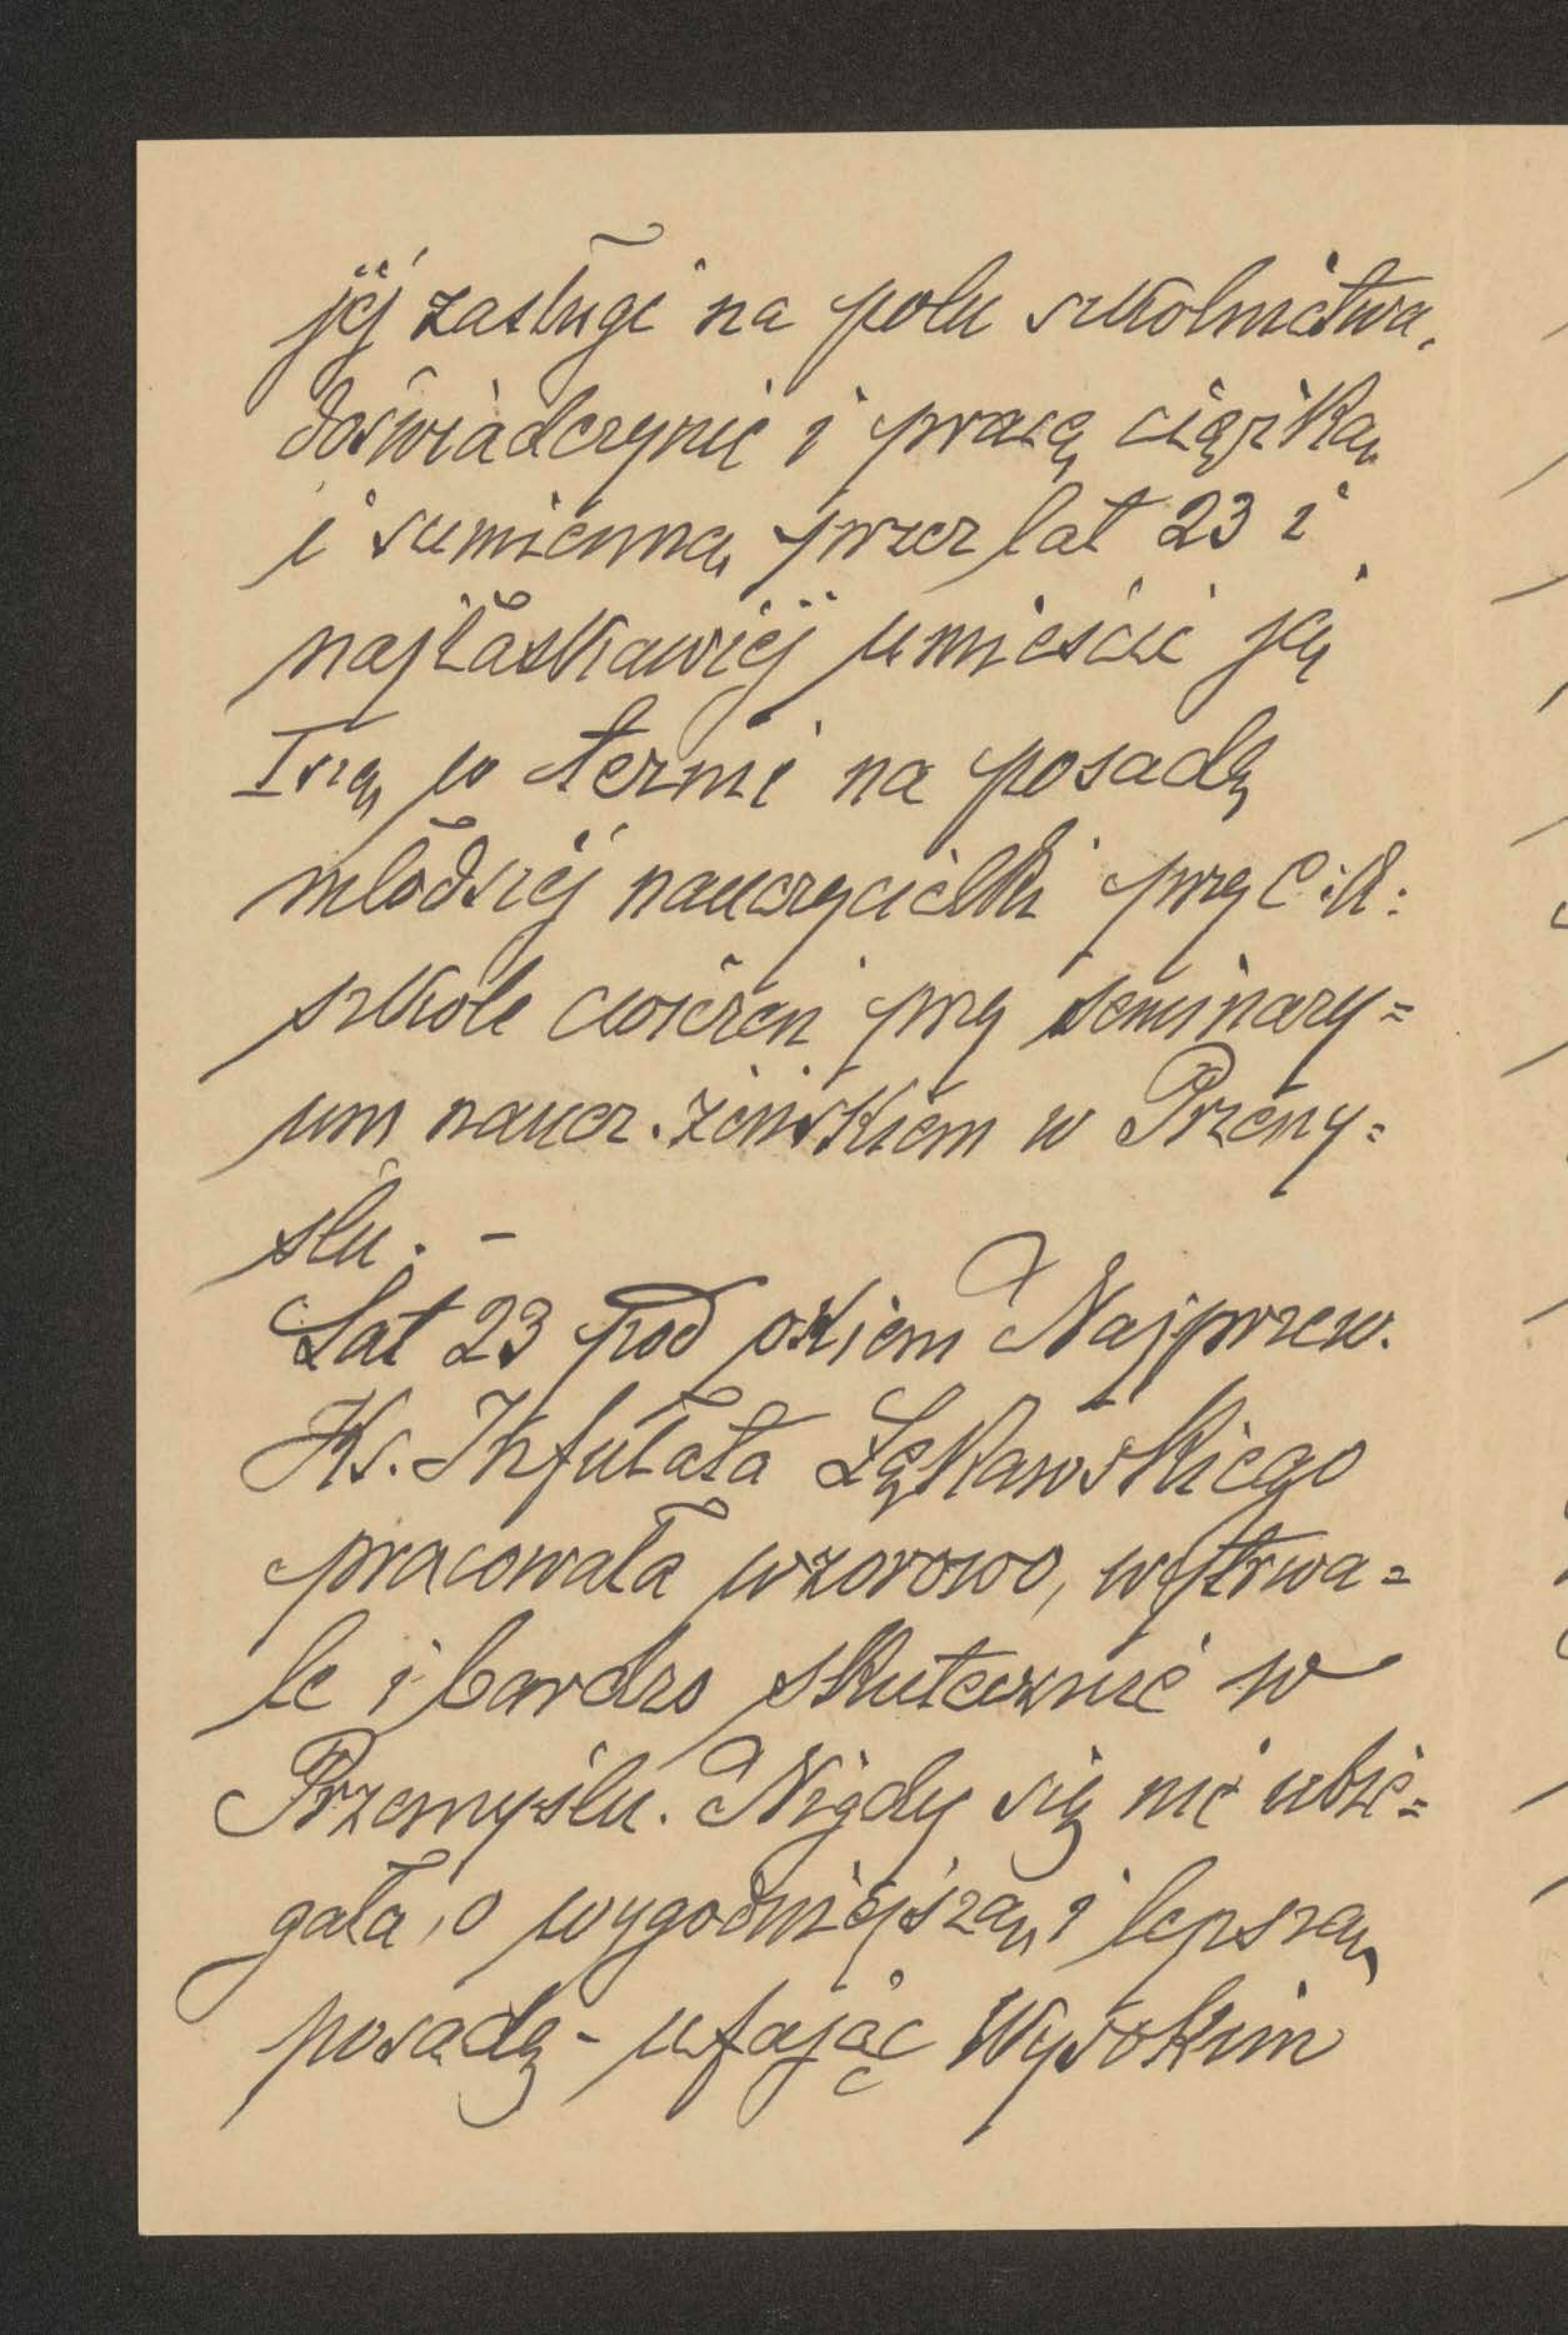 jej zasługi na polu szkolnictwa,
doświadczenie i pracę ciężką
i sumienną przez lat 23 i
najłaskawiej umieścić ją
Iszą w ternie na posadę
młodszej nauczycielki przy C. k.
szkole ćwiczeń przy seminary=
um naucz. żeńskiem w Przemy=
ślu. -
Lat 23 pod okiem Najprzew.
Ks. Infułata Łękawskiego
pracowała wzorowo, wytrwa=
le i bardzo skutecznie w
Przemyślu. Nigdy się nie ubie=
gała, o wygodniejszą i lepszą
posadę - ufając Wysokim